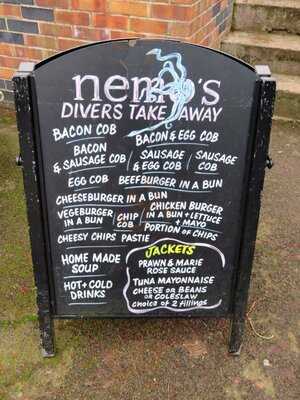 nemo's
DIVERS TAKE AWAY
BACON COB
BACON & EGG COB
BACON
& SAUSAGE COB
SAUSAGE
& EGG COB
SAUSAGE
COB
EGG COB
BEEFBURGER IN A BUN
CHEESEBURGER IN A BUN
VEGEBURGER
IN A BUN
CHIP
COB
CHICKEN BURGER
IN A BUN + LETTUCE
+ MAYO
CHEESY CHIPS
PASTIE
PORTION OF CHIPS
HOME MADE
SOUP
HOT + COLD
DRINKS
JACKETS
PRAWN & MARIE
ROSE SAUCE
TUNA MAYONNAISE
CHEESE OR BEANS
OR COLESLAW
CHOICE OF 2 FILLINGS